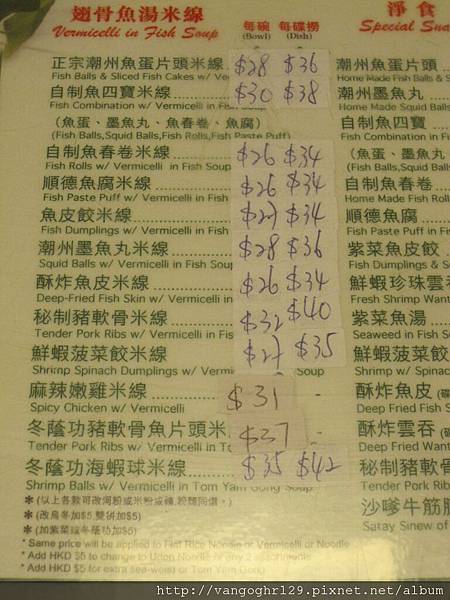 翅骨魚湯米線 每碗 每碟撈 淨食
Vermicelli in Fish Soup (Bowl) (Dish) Special Sna
正宗潮州魚蛋片頭米線 $28 $36 潮州魚蛋片頭
Fish Balls & Sliced Fish Cakes w/ Ve Home Made Fish Balls
自制魚四寶米線 $30 $38 潮州墨魚丸
Fish Combination w/ Vermicelli in Fish Home Made Squid Balls
（魚蛋、墨魚丸、魚春卷、魚腐） 自制魚四寶
(Fish Balls,Squid Balls,Fish Rolls,Fish Paste Puff) Fish Combination in F
自制魚春卷米線 $26 $34 （魚蛋、墨魚丸
Fish Rolls w/ Vermicelli in Fish Soup (Fish Balls,Squid Balls
順德魚腐米線 $26 $34 自制魚春卷
Fish Paste Puff w/ Vermicelli in Fish Home Made Fish Rolls
魚皮餃米線 $27 $34 順德魚腐
Fish Dumplings w/ Vermicelli in Fish Fish Paste Puff in Fish
潮州墨魚丸米線 $28 $36 紫菜魚皮餃
Squid Balls w/ Vermicelli in Fish Soup Fish Dumplings & S
酥炸魚皮米線 $26 $34 鮮蝦珍珠雲吞
Deep-Fried Fish Skin w/ Vermicelli Fresh Shrimp Want
秘制豬軟骨米線 $32 $40 紫菜魚湯
Tender Pork Ribs w/ Vermicelli in F Seaweed in Fish So
鮮蝦菠菜餃米線 $27 $35 鮮蝦菠菜餃
Shrimp Spinach Dumplings w/ Vermicelli Soup Shrimp Spinach Dum
麻辣嫩雞米線 $31 酥炸魚皮
Spicy Chicken w/ Vermicelli Deep Fried Fish S
冬蔭功豬軟骨魚片頭米 $37 酥炸雲吞
Tender Pork Ribs w/ Vermicelli in To Deep Fried Want
冬蔭功海蝦球米線 $35 $42 秘制豬軟骨
Shrimp Balls w/ Vermicelli in Tom Yam Gong Soup Tender Pork Ribs
＊(以上各款可改河粉或米粉或麵,粉麵同價。) 沙嗲牛筋腩
＊(改烏冬加$5,雙拼加$5) Satay Sinew of
＊(加紫菜或冬蔭功加$5)
* Same price will be applied to Flat Rice Noodle or Vermicelli or Noodle
* Add HKD $5 to change to Udon Noodle or any 2
* Add HKD $5 for extra sea-weed or Tom Yam Gong
http://vangoghrl29.pixnet.net/album